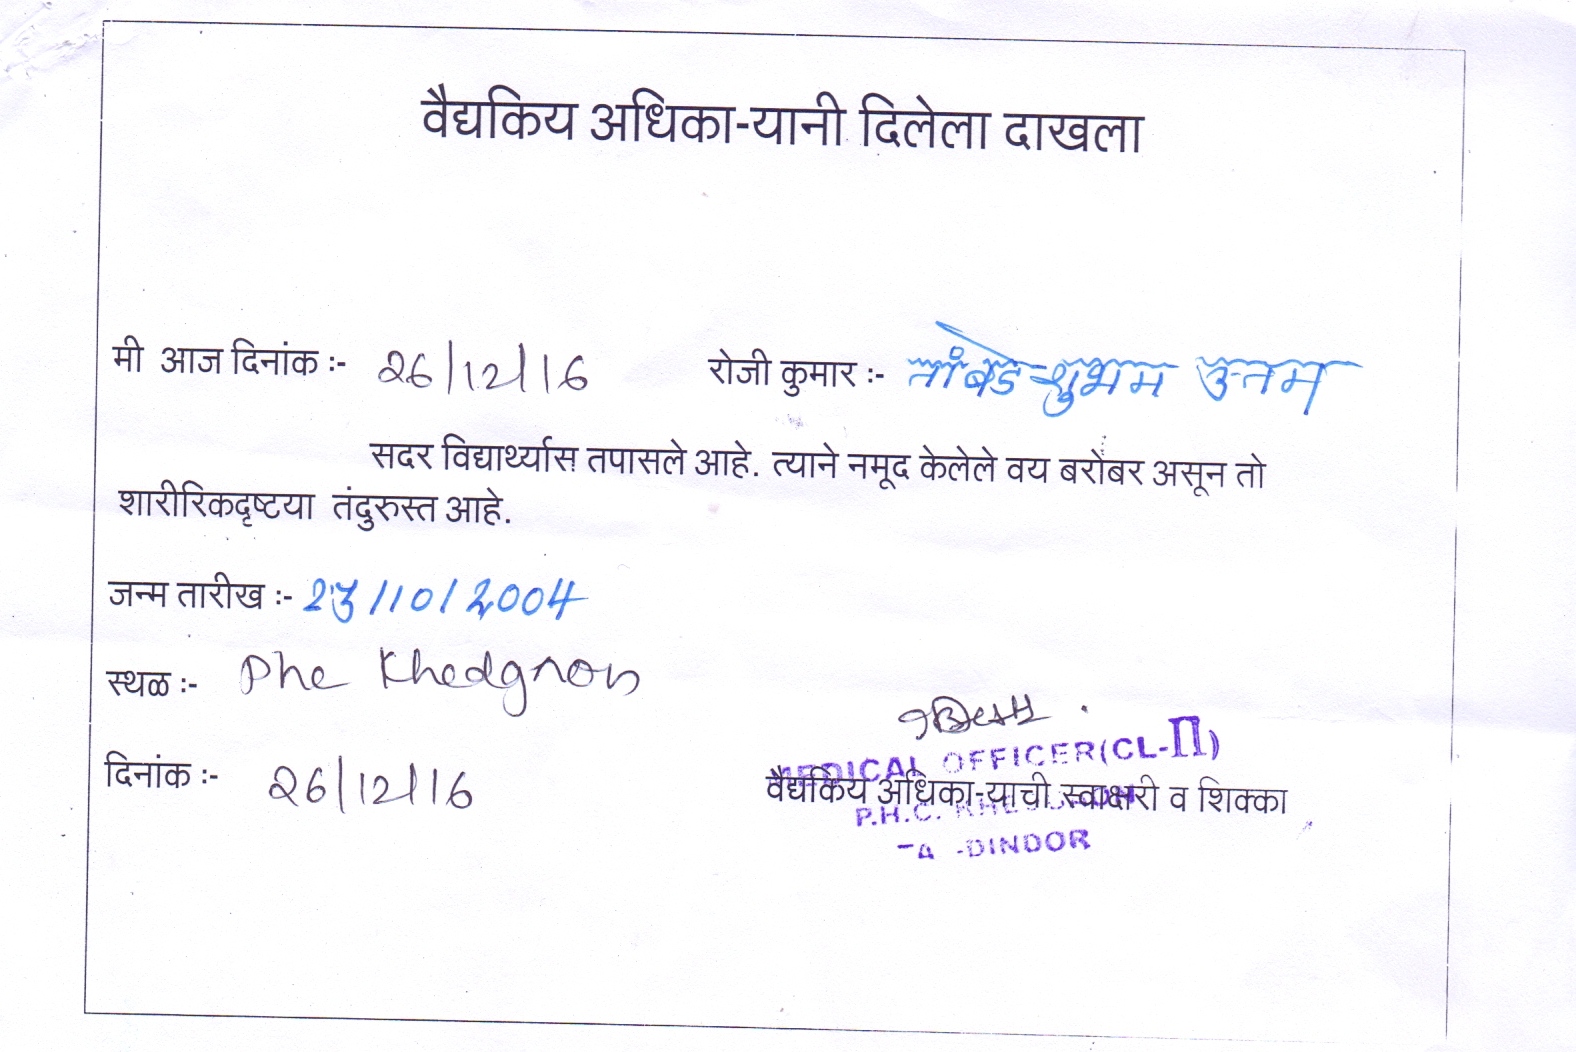 वैद्यकिय अधिका-यानी दिलेला दाखला
मी आज दिनांक :- 26/12/16 रोजी कुमार :- तांबडे शुभम उत्तम
सदर विद्यार्थ्यास तपासले आहे. त्याने नमूद केलेले वय बरोबर असून तो
शारीरिकदृष्टया तंदुरुस्त आहे.
जन्म तारीख :- /10/2004
स्थळ :- Phc Khedgaon
दिनांक :- 26/12/16
MEDICAL OFFICER(CL-II)
वैद्यकिय अधिका-याची स्वाक्षरी व शिक्का
P.H.C.
DINDOR